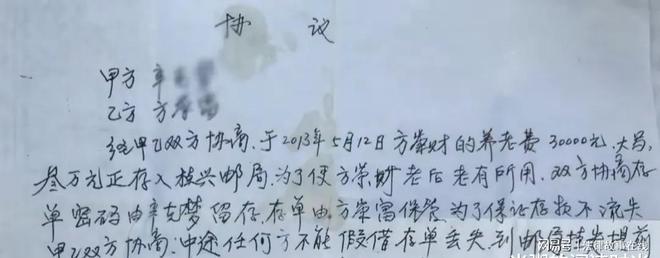 协 议
甲方 辛
乙方 方
经甲乙双方协商,于2013年5月12日方荣财的养老费30000元.大写,
叁万元正存入 兴邮局.为了使方荣财老后老有所用.双方协商存
单密码由辛 梦留存,存单由方荣富保管.为了保证存款不流失
甲乙双方协商.中途任何方不能假借存单丢失.到邮局挂失提前